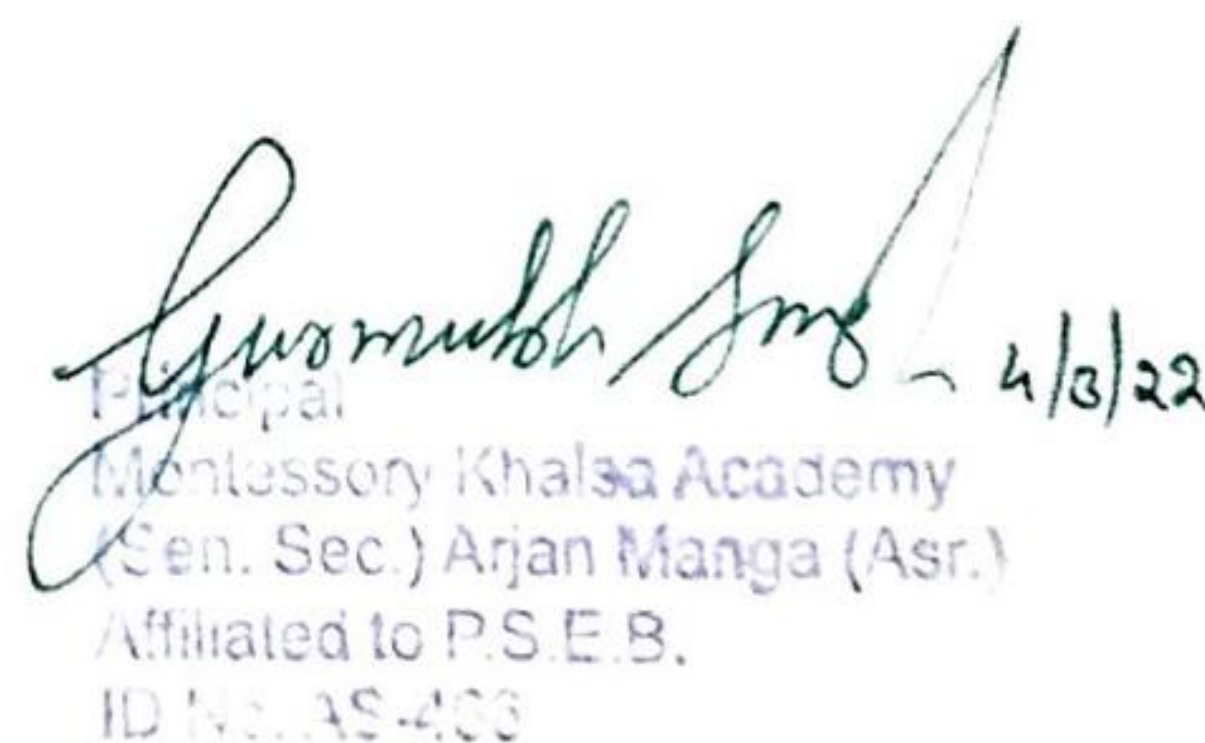 Gurmukh Singh 4/3/22
Principal
Montessory Khalsa Academy
(Sen. Sec.) Arjan Manga (Asr.)
Affiliated to P.S.E.B.
ID No. AS-